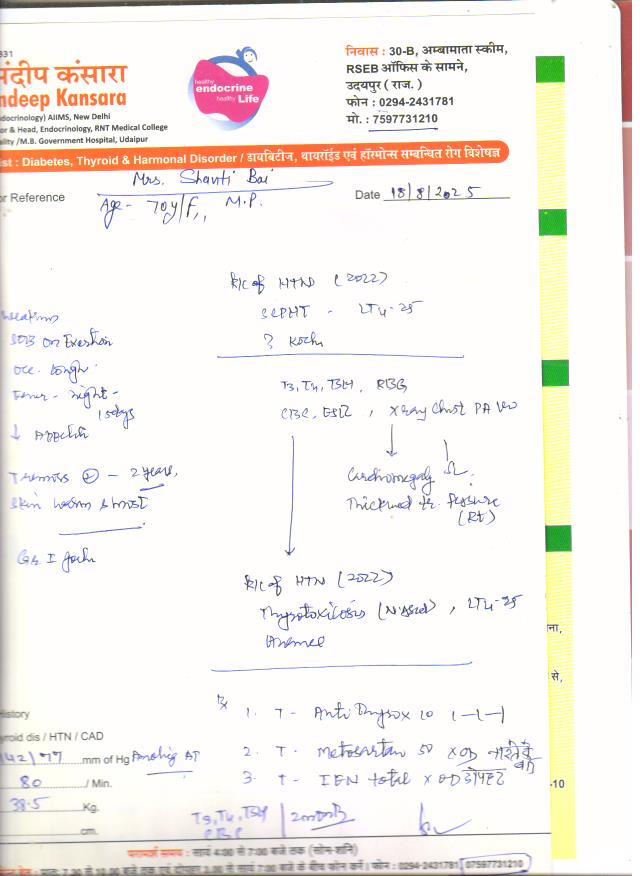 331
संदीप कंसारा
ndeep Kansara
docrinology) AIIMS, New Delhi
or & Head, Endocrinology, RNT Medical College
ality /M.B. Government Hospital, Udaipur
healthy
endocrine
healthy Life
निवास : 30-B, अम्बामाता स्कीम,
RSEB ऑफिस के सामने,
उदयपुर ( राज. )
फोन : 0294-2431781
मो. : 7597731210
ist : Diabetes, Thyroid & Harmonal Disorder / डायबिटीज, थायरॉईड एवं हॉरमोन्स सम्बन्धित रोग विशेषज्ञ
or Reference
Mrs. Shanti Bai
Date 18/8/2025
Age - 70y/F,, M.P.
K/C of HTN (2022)
SCPHT - LT4-25
? Koch
SOB on Exertion
Occ. Cough
Fever - night -
15 days
↓ Appetite
Tremors - 2 years,
Skin warm & moist
Gr I
T3, T4, TSH, RBG
CBC, ESR, xray Chest PA
Cardiomegaly
Thickened fissure
(Rt)
K/C of HTN (2022)
Thyrotoxicosis, LT4-25
ना,
से,
-10
History
yroid dis / HTN / CAD
142/77 mm of Hg
80 / Min.
38.5 Kg.
cm.
Rx
1. T - Anti Thyrox 10 1-1-1
2. T - Metosartan 50 x OD नाश्ते के बाद
3. T - total x OD दोपहर
T3, T4, TSH
CBC
2 month
परामर्श समय : सायं 4:00 से 7:00 बजे तक (सोम-शनि)
प्रातः 7.30 से 10.00 बजे तक एवं दोपहर 3.00 से सायं 7:00 बजे के बीच फोन करें। फोन : 0294-2431781 07597731210